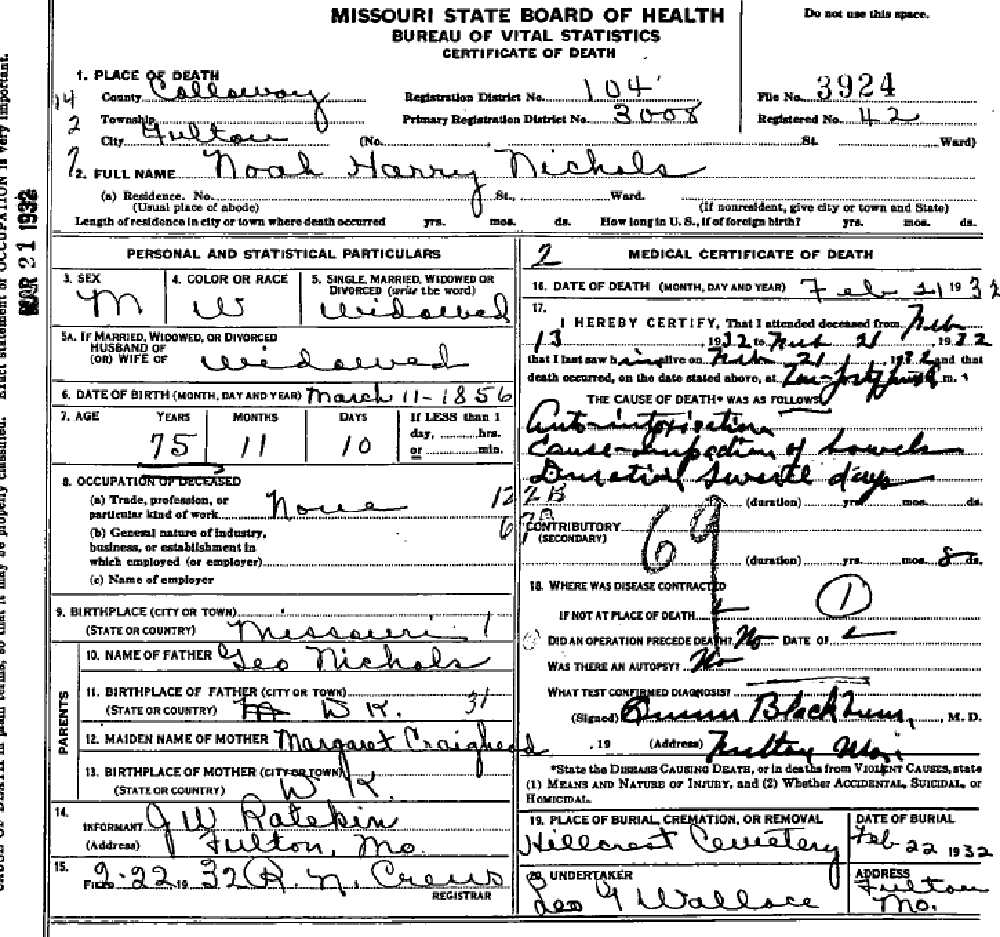 MISSOURI STATE BOARD OF HEALTH
BUREAU OF VITAL STATISTICS
CERTIFICATE OF DEATH
Do not use this space.
1. PLACE OF DEATH
County Callaway Registration District No. 104 File No. 3924
Township Primary Registration District No. 3008 Registered No. 42
City Fulton (No. St. Ward)
2. FULL NAME Noah Harry Nichols
(a) Residence. No. St., Ward.
(Usual place of abode) (If nonresident, give city or town and State)
Length of residence in city or town where death occurred yrs. mos. ds. How long in U. S., if of foreign birth? yrs. mos. ds.
MAR 21 1932
PERSONAL AND STATISTICAL PARTICULARS
3. SEX 4. COLOR OR RACE 5. SINGLE, MARRIED, WIDOWED OR
DIVORCED (write the word)
M W Widowed
5A. IF MARRIED, WIDOWED, OR DIVORCED
HUSBAND OF
(OR) WIFE OF Widowed
6. DATE OF BIRTH (MONTH, DAY AND YEAR) March 11-1856
7. AGE YEARS MONTHS DAYS If LESS than 1
day, hrs.
or min.
75 11 10
8. OCCUPATION OF DECEASED
(a) Trade, profession, or
particular kind of work None
(b) General nature of industry,
business, or establishment in
which employed (or employer)
(c) Name of employer
9. BIRTHPLACE (CITY OR TOWN)
(STATE OR COUNTRY) Missouri 1
PARENTS
10. NAME OF FATHER Geo Nichols
11. BIRTHPLACE OF FATHER (CITY OR TOWN)
(STATE OR COUNTRY) W K. 31
12. MAIDEN NAME OF MOTHER Margaret Craighead
13. BIRTHPLACE OF MOTHER (CITY OR TOWN)
(STATE OR COUNTRY) W K.
14.
INFORMANT J W Ratekin
(Address) Fulton, Mo.
15.
FILED 2-22 19 32 R. N. Crews
REGISTRAR
2 MEDICAL CERTIFICATE OF DEATH
16. DATE OF DEATH (MONTH, DAY AND YEAR) Feb 21 19 32
17.
I HEREBY CERTIFY, That I attended deceased from Feb
13 1932 to Feb 21 1932
that I last saw him alive on Feb 21 1932 and that
death occurred, on the date stated above, at m.
THE CAUSE OF DEATH* WAS AS FOLLOWS:
Auto-intoxication
Cause-impaction of bowels
Duration Several days
(duration) yrs. mos. ds.
CONTRIBUTORY
(SECONDARY)
69
(duration) yrs. mos. 8 ds.
18. WHERE WAS DISEASE CONTRACTED
IF NOT AT PLACE OF DEATH 1
DID AN OPERATION PRECEDE DEATH? No DATE OF
WAS THERE AN AUTOPSY? No
WHAT TEST CONFIRMED DIAGNOSIS?
(Signed) Blackburn, M. D.
, 19 (Address) Fulton Mo.
*State the DISEASE CAUSING DEATH, or in deaths from VIOLENT CAUSES, state
(1) MEANS AND NATURE OF INJURY, and (2) Whether ACCIDENTAL, SUICIDAL, or
HOMICIDAL.
19. PLACE OF BURIAL, CREMATION, OR REMOVAL DATE OF BURIAL
Hillcrest Cemetery Feb 22 1932
20. UNDERTAKER ADDRESS
Geo G Wallace Fulton
Mo.